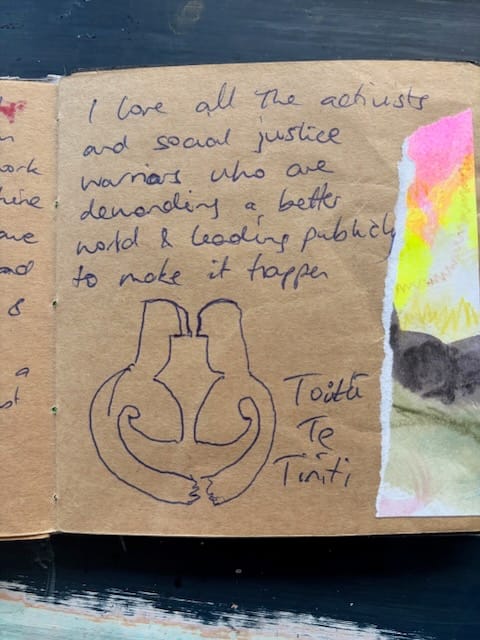 n
work
hine
ave
and
&
a
st
I love all the activists
and social justice
warriors who are
demanding a better
world & leading publicly
to make it happen
Toitū
Te
Tiriti